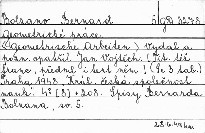 Bolzano Bernard 5 g B 3278.
Geometrické práce.
(Geometrische Arbeiten) Vydal a
pozn. opatřil Jan Vojtěch. (Tit. též
franc., předml. i text něm.) (Se 3 tab.)
Praha 1948, Král. česká společnost
nauk. 4° (8) + 208. Spisy Bernarda
Bolzana, sv. 5.